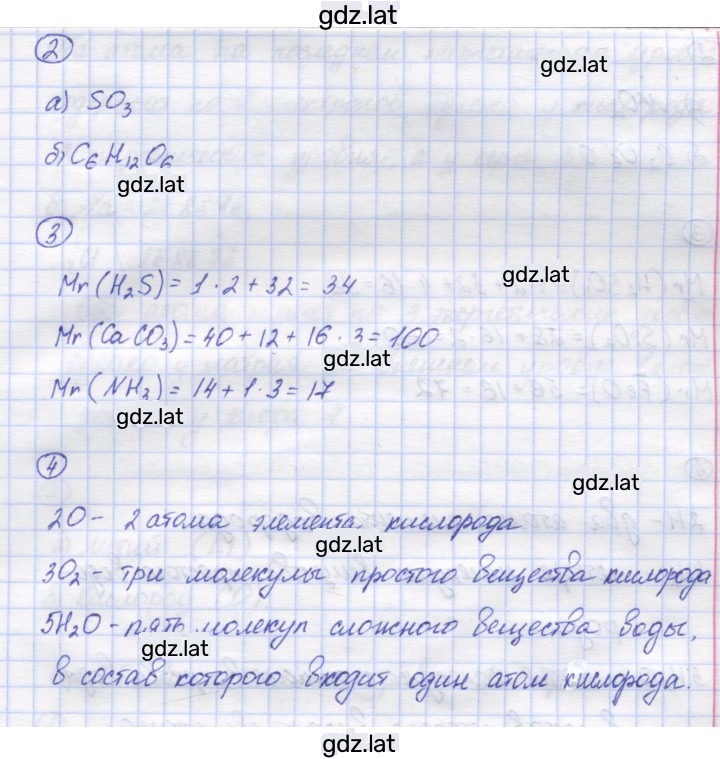 gdz.lat
2
gdz.lat
а) SO3
б) C6H12O6
gdz.lat
3
gdz.lat
Mr(H2S) = 1 · 2 + 32 = 34
Mr(CaCO3) = 40 + 12 + 16 · 3 = 100
gdz.lat
Mr(NH3) = 14 + 1 · 3 = 17
gdz.lat
4
gdz.lat
2O - 2 атома элемента кислорода
gdz.lat
3O2 - три молекулы простого вещества кислорода
5H2O - пять молекул сложного вещества воды,
gdz.lat
в состав которого входит один атом кислорода.
gdz.lat